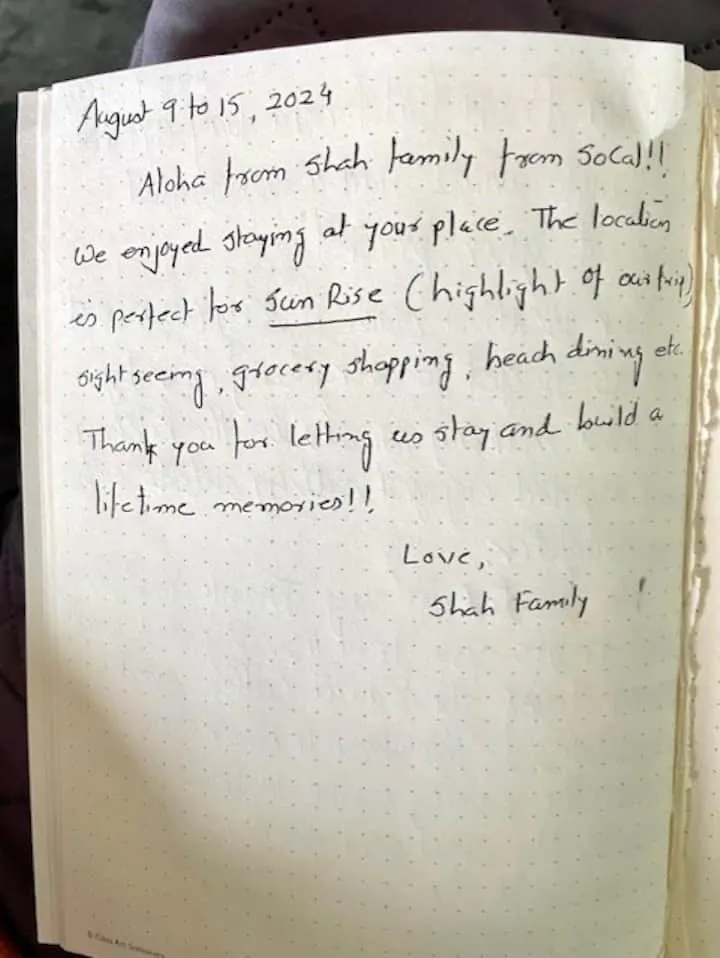 August 9 to 15, 2024
Aloha from Shah family from SoCal!!
We enjoyed staying at your place. The location
is perfect for Sun Rise (highlight of our trip)
sight seeing, grocery shopping, beach dining etc.
Thank you for letting us stay and build a
lifetime memories!!
Love,
Shah Family